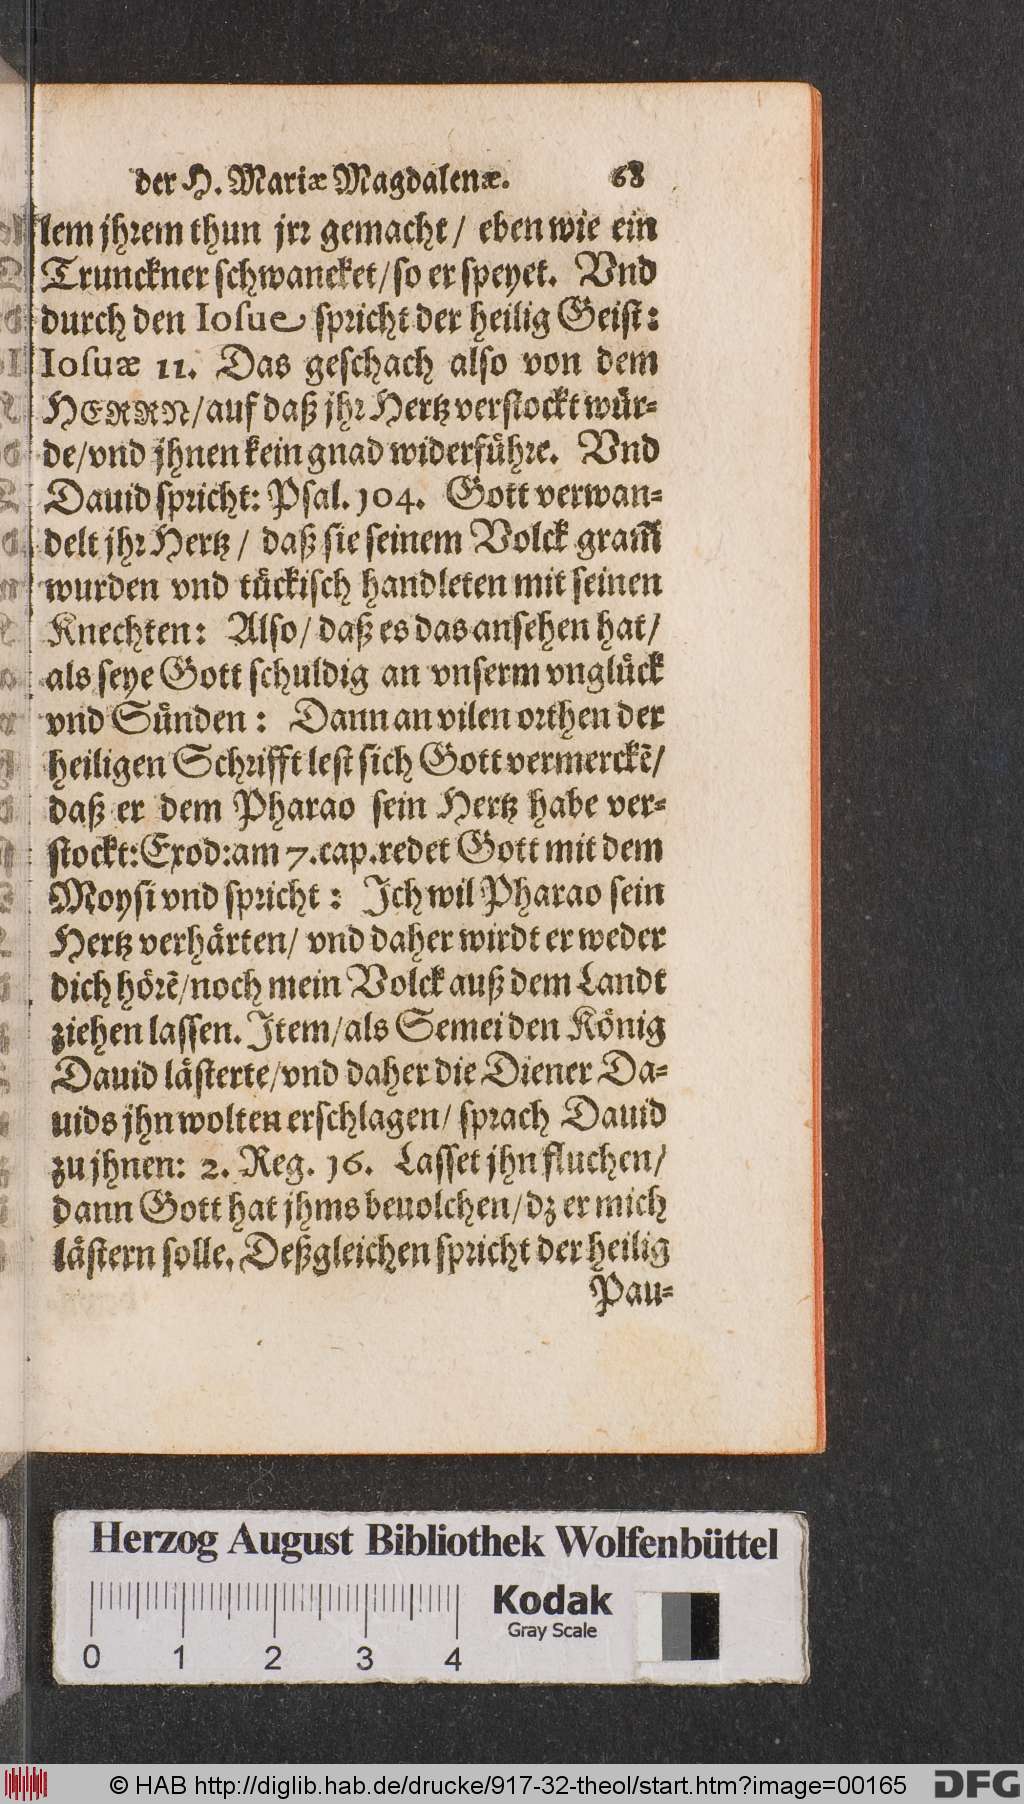 der H. Mariæ Magdalenæ. 68
lem jhrem thun jrr gemacht / eben wie ein
Trunckner schwancket / so er speyet. Vnd
durch den Iosue spricht der heilig Geist:
Iosuæ 11. Das geschach also von dem
HERRN / auf daß jhr Hertz verstockt wuͤr-
de / vnd jhnen kein gnad widerfuͤhre. Vnd
Dauid spricht: Psal. 104. Gott verwan-
delt jhr Hertz / daß sie seinem Volck gram̄
wurden vnd tuͤckisch handleten mit seinen
Knechten: Also / daß es das ansehen hat /
als seye Gott schuldig an vnserm vngluͤck
vnd Suͤnden: Dann an vilen orthen der
heiligen Schrifft lest sich Gott vermerckẽ /
daß er dem Pharao sein Hertz habe ver-
stockt: Exod: am 7. cap. redet Gott mit dem
Moysi vnd spricht: Ich wil Pharao sein
Hertz verhaͤrten / vnd daher wirdt er weder
dich hoͤrẽ / noch mein Volck auß dem Landt
ziehen lassen. Item / als Semei den Koͤnig
Dauid laͤsterte / vnd daher die Diener Da-
uids jhn wolten erschlagen / sprach Dauid
zu jhnen: 2. Reg. 16. Lasset jhn fluchen /
dann Gott hat jhms beuolchen / dz er mich
laͤstern solle. Deßgleichen spricht der heilig
Pau-
Herzog August Bibliothek Wolfenbüttel
Kodak
Gray Scale
0 1 2 3 4
© HAB http://diglib.hab.de/drucke/917-32-theol/start.htm?image=00165 DFG